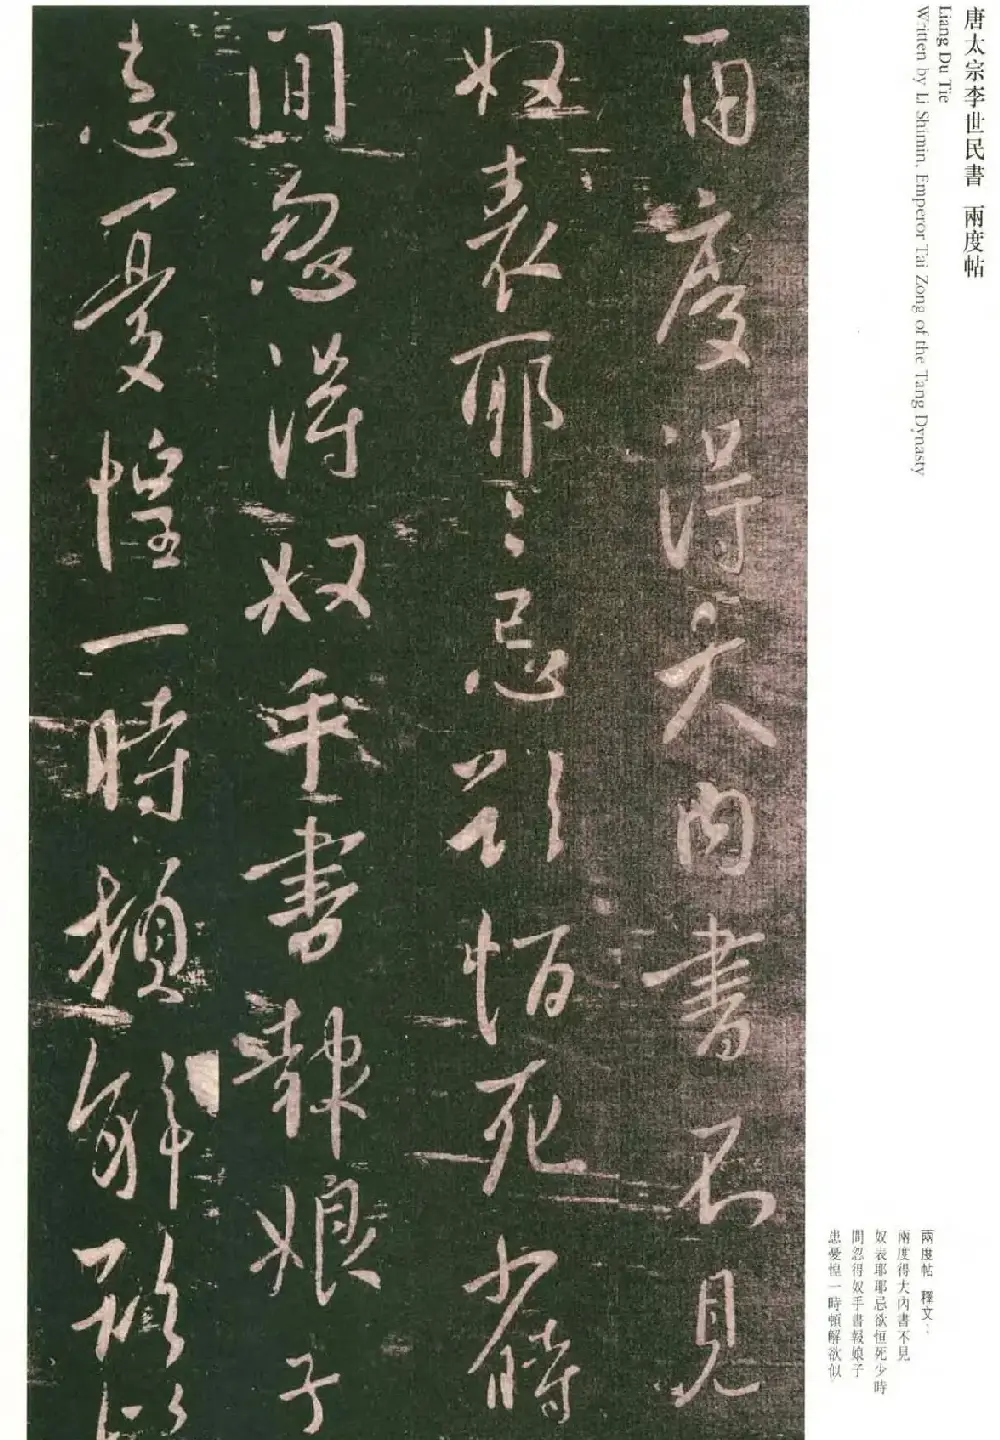 唐太宗李世民書 兩度帖
Liang Du Tie
Written by Li Shimin, Emperor Tai Zong of the Tang Dynasty
兩度得大內書不見
奴表耶〻忌欲恒死少時
間忽得奴手書報娘子
患憂惶一時頓解欲似
兩度帖 釋文：
兩度得大內書不見
奴表耶耶忌欲恒死少時
間忽得奴手書報娘子
患憂惶一時頓解欲似